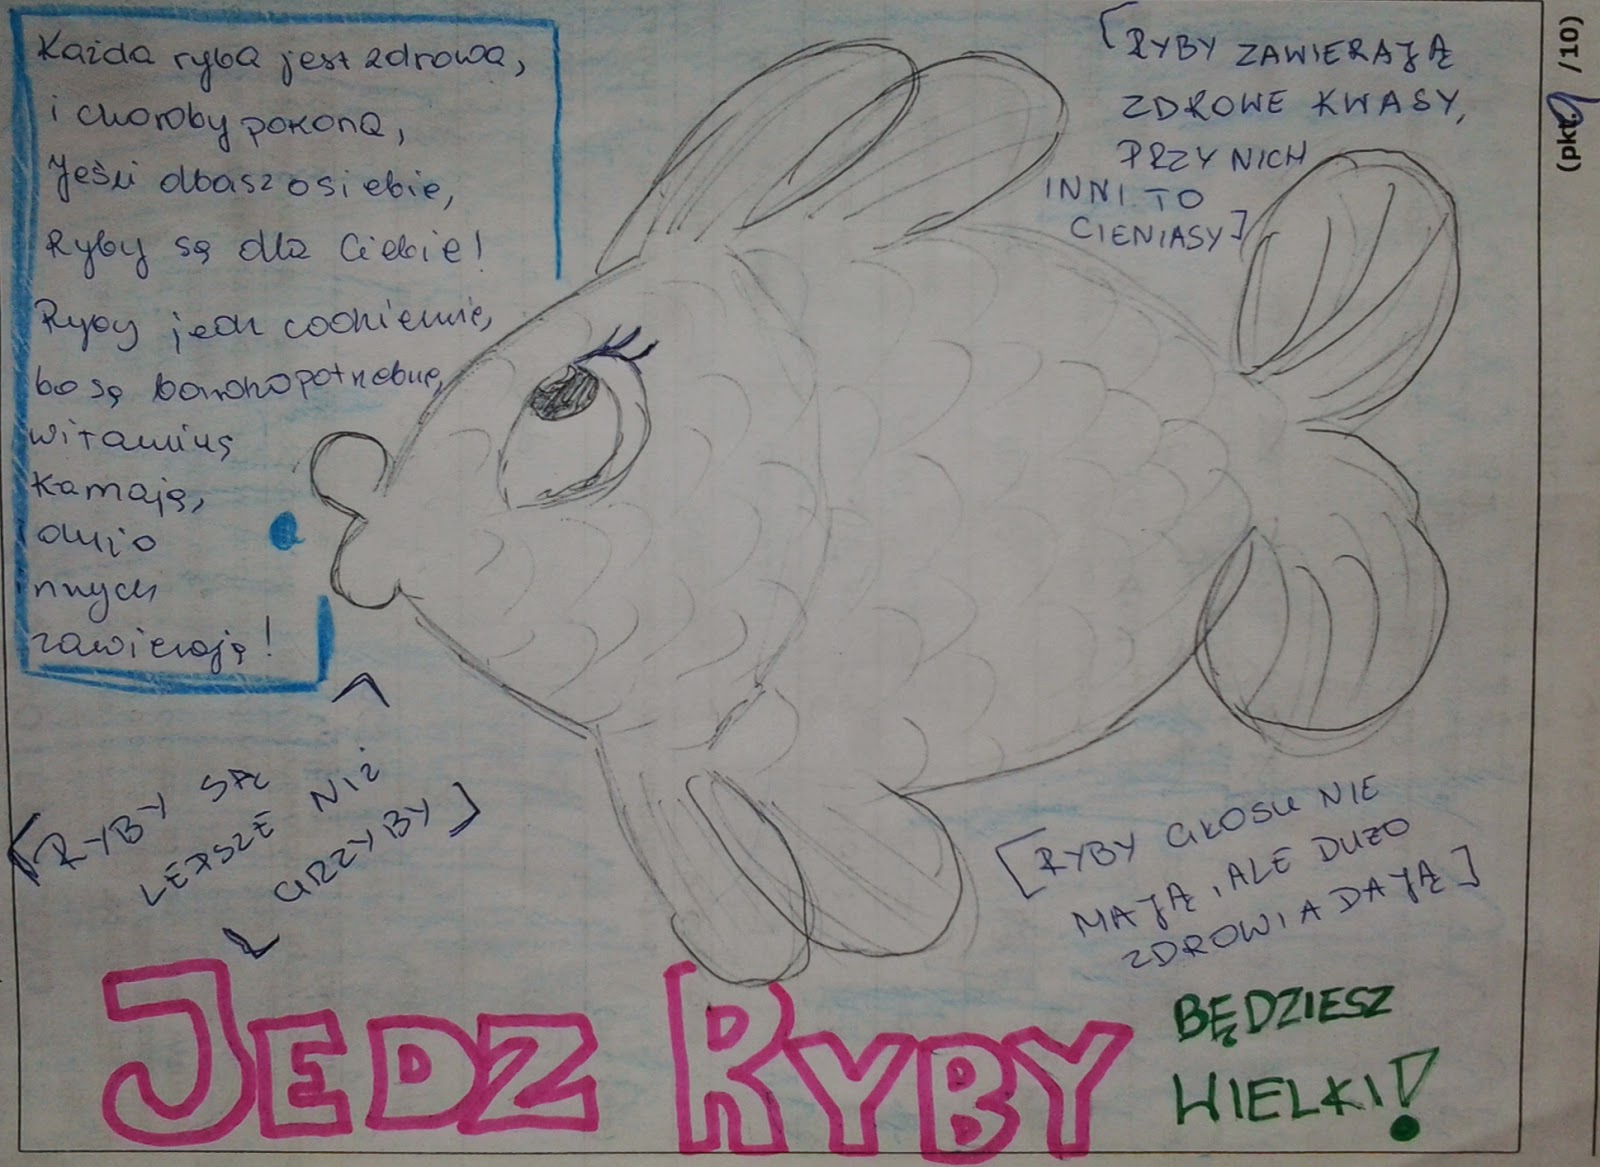 Każda ryba jest zdrowa,
i choroby pokona,
Jeśli dbasz o siebie,
Ryby są dla Ciebie!
Ryby jedz codziennie,
bo są bardzo potrzebne,
witaminę
K a mają,
dużo
innych
zawierają!
[RYBY ZAWIERAJĄ
ZDROWE KWASY,
PRZY NICH
INNI TO
CIENIASY]
(pkt. 9 /10)
[RYBY SĄ
LEPSZE NIŻ
GRZYBY]
[RYBY GŁOSU NIE
MAJĄ, ALE DUŻO
ZDROWIA DAJĄ]
JEDZ RYBY
BĘDZIESZ
WIELKI!